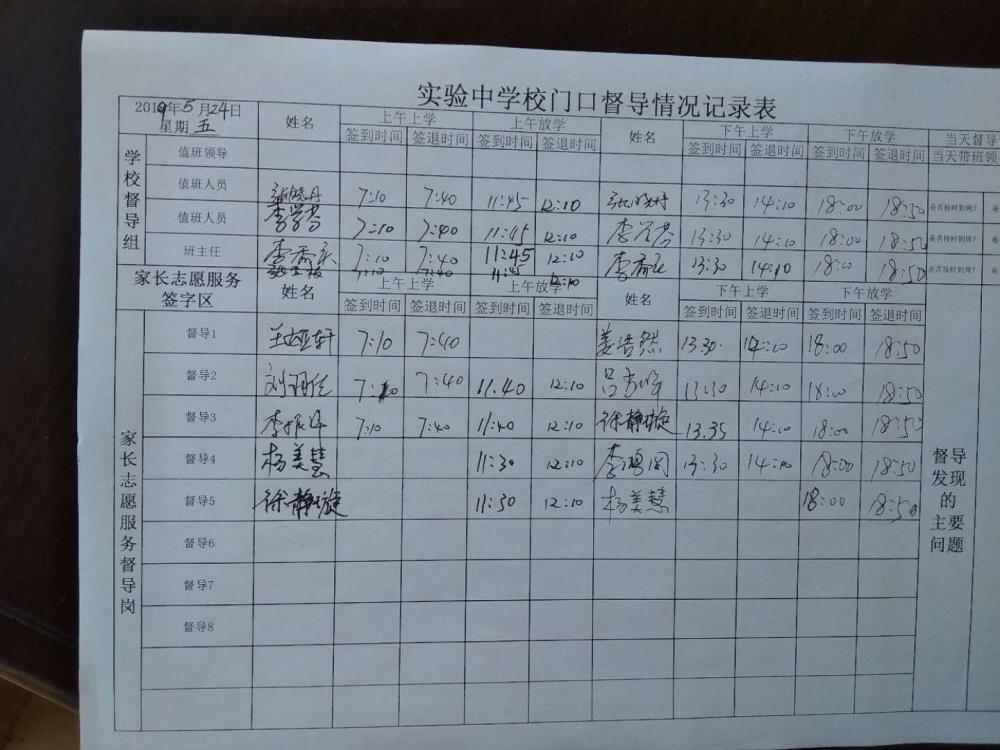 实验中学校门口督导情况记录表
2019年5月24日
星期 五
姓名 上午上学 上午放学 姓名 下午上学 下午放学 当天督导
签到时间 签退时间 签到时间 签退时间 签到时间 签退时间 签到时间 签退时间 当天带班领
学校督导组
值班领导
值班人员 7:10 7:40 11:45 12:10 13:30 14:10 18:00 18:50 是否按时到岗? 是
值班人员 7:10 7:40 11:45 12:10 13:30 14:10 18:00 18:50 是否按时到岗? 是
班主任 7:10 7:40 11:45 12:10 13:30 14:10 18:00 18:50 是否按时到岗? 是
7:10 7:40 11:45 12:10
家长志愿服务签字区 姓名 上午上学 上午放学 姓名 下午上学 下午放学
签到时间 签退时间 签到时间 签退时间 签到时间 签退时间 签到时间 签退时间
家长志愿服务督导岗
督导1 7:10 7:40 姜浩然 13:30 14:10 18:00 18:50
督导2 7:10 7:40 11.40 12:10 13:30 14:10 18:00 18:50
督导3 7:10 7:40 11:40 12:10 徐静璇 13.35 14:10 18:00 18:50
督导4 杨美慧 11:30 12:10 13:30 14:10 18:00 18:50
督导5 徐静璇 11:30 12:10 杨美慧 18:00 18:50
督导6
督导7
督导8
督导
发现
的
主要
问题